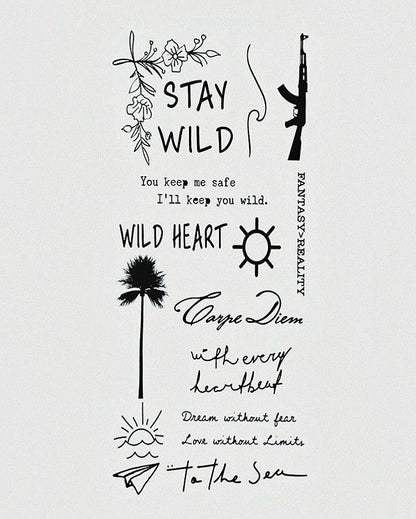 STAY
WILD
You keep me safe
I'll keep you wild.
FANTASY>REALITY
WILD HEART
Carpe Diem
with every
heartbeat
Dream without fear
Love without Limits
to The Sea